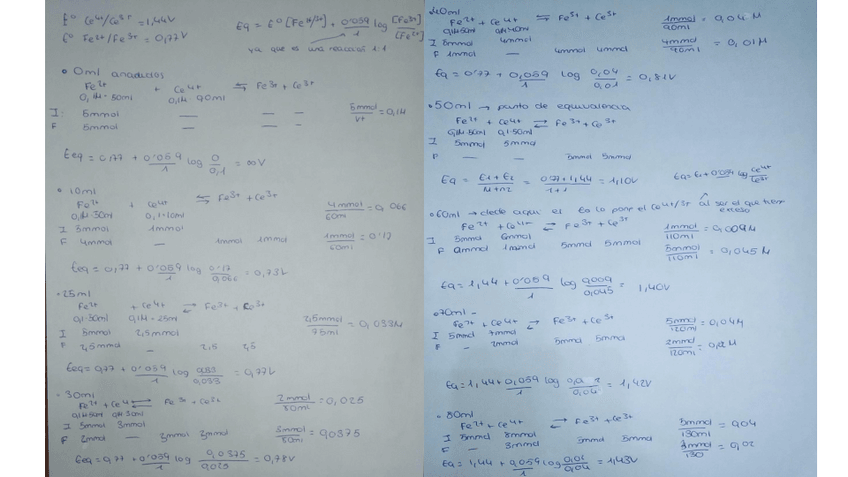 E° Ce4+/Ce3+ = 1,44V
E° Fe2+/Fe3+ = 0,77V
Eq = E° [Fe2+/3+] + 0'059/1 log [Fe3+]/[Fe2+]
ya que es una reacción 1:1
• 0ml añadidos
Fe2+ + Ce4+ ⇆ Fe3+ + Ce3+
0,1M - 50ml 0,1M 0,0ml
I: 5mmol — — —
F 5mmol — — —
5mmol/vt = 0,1M
Eeq = 0,77 + 0'059/1 log 0/0,1 = ∞ V
• 10ml
Fe2+ + Ce4+ ⇆ Fe3+ + Ce3+
I 5mmol 1mmol
F 4mmol — 1mmol 1mmol
4mmol/60ml = 0,066
1mmol/60ml = 0'17
Eeq = 0,77 + 0'059/1 log 0'17/0,066 = 0,73V
• 25ml
Fe2+ + Ce4+ ⇄ Fe3+ + Ce3+
0,1·50ml 0,1M - 25ml
I 5mmol 2,5mmol
F 2,5mmol — 2,5 2,5
2,5mmol/75ml = 0,033M
Eeq = 0,77 + 0'059/1 log 0,33/0,033 = 0,77V
• 30ml
Fe2+ + Ce4+ ⇄ Fe3+ + Ce3+
I 5mmol 3mmol
F 2mmol — 3mmol 3mmol
2mmol/80ml = 0,025
3mmol/80ml = 0,0375
Eeq = 0,77 + 0'059/1 log 0,0375/0,025 = 0,78V
40ml
Fe2+ + Ce4+ ⇆ Fe3+ + Ce3+
I 5mmol 4mmol
F 1mmol — 4mmol 4mmol
1mmol/90ml = 0,04M
4mmol/90ml = 0,01M
Eq = 0'77 + 0,059/1 log 0,04/0,01 = 0,81V
• 50ml → punto de equivalencia
Fe2+ + Ce4+ ⇄ Fe3+ + Ce3+
0,1M·50ml 0,1·50ml
I 5mmol 5mmol
F — — 5mmol 5mmol
Eq = E1+E2/n1+n2 = 0,77+1,44/1+1 = 1,10V
Eq = E° + 0,059 log Ce4+/Ce3+
• 60ml → desde aquí el E° lo pone el Ce4+/3+ al ser el que tiene exceso
Fe2+ + Ce4+ ⇄ Fe3+ + Ce3+
I 5mmol 6mmol
F 0mmol 1mmol 5mmol 5mmol
1mmol/110ml = 0,009M
5mmol/110ml = 0,045M
Eq = 1,44 + 0'059/1 log 0,009/0,045 = 1,40V
• 70ml -
Fe2+ + Ce4+ ⇄ Fe3+ + Ce3+
I 5mmol 7mmol
F — 2mmol 5mmol 5mmol
5mmol/120ml = 0,04M
2mmol/120ml =
Eq = 1,44 + 0,059/1 log = 1,42V
• 80ml
Fe2+ + Ce4+ ⇄ Fe3+ + Ce3+
I 5mmol 8mmol
F — 3mmol 5mmol 5mmol
5mmol/130ml = 0,04
3mmol/130 = 0,02
Eq = 1,44 + 0,059/1 log 0,02/0,04 = 1,43V